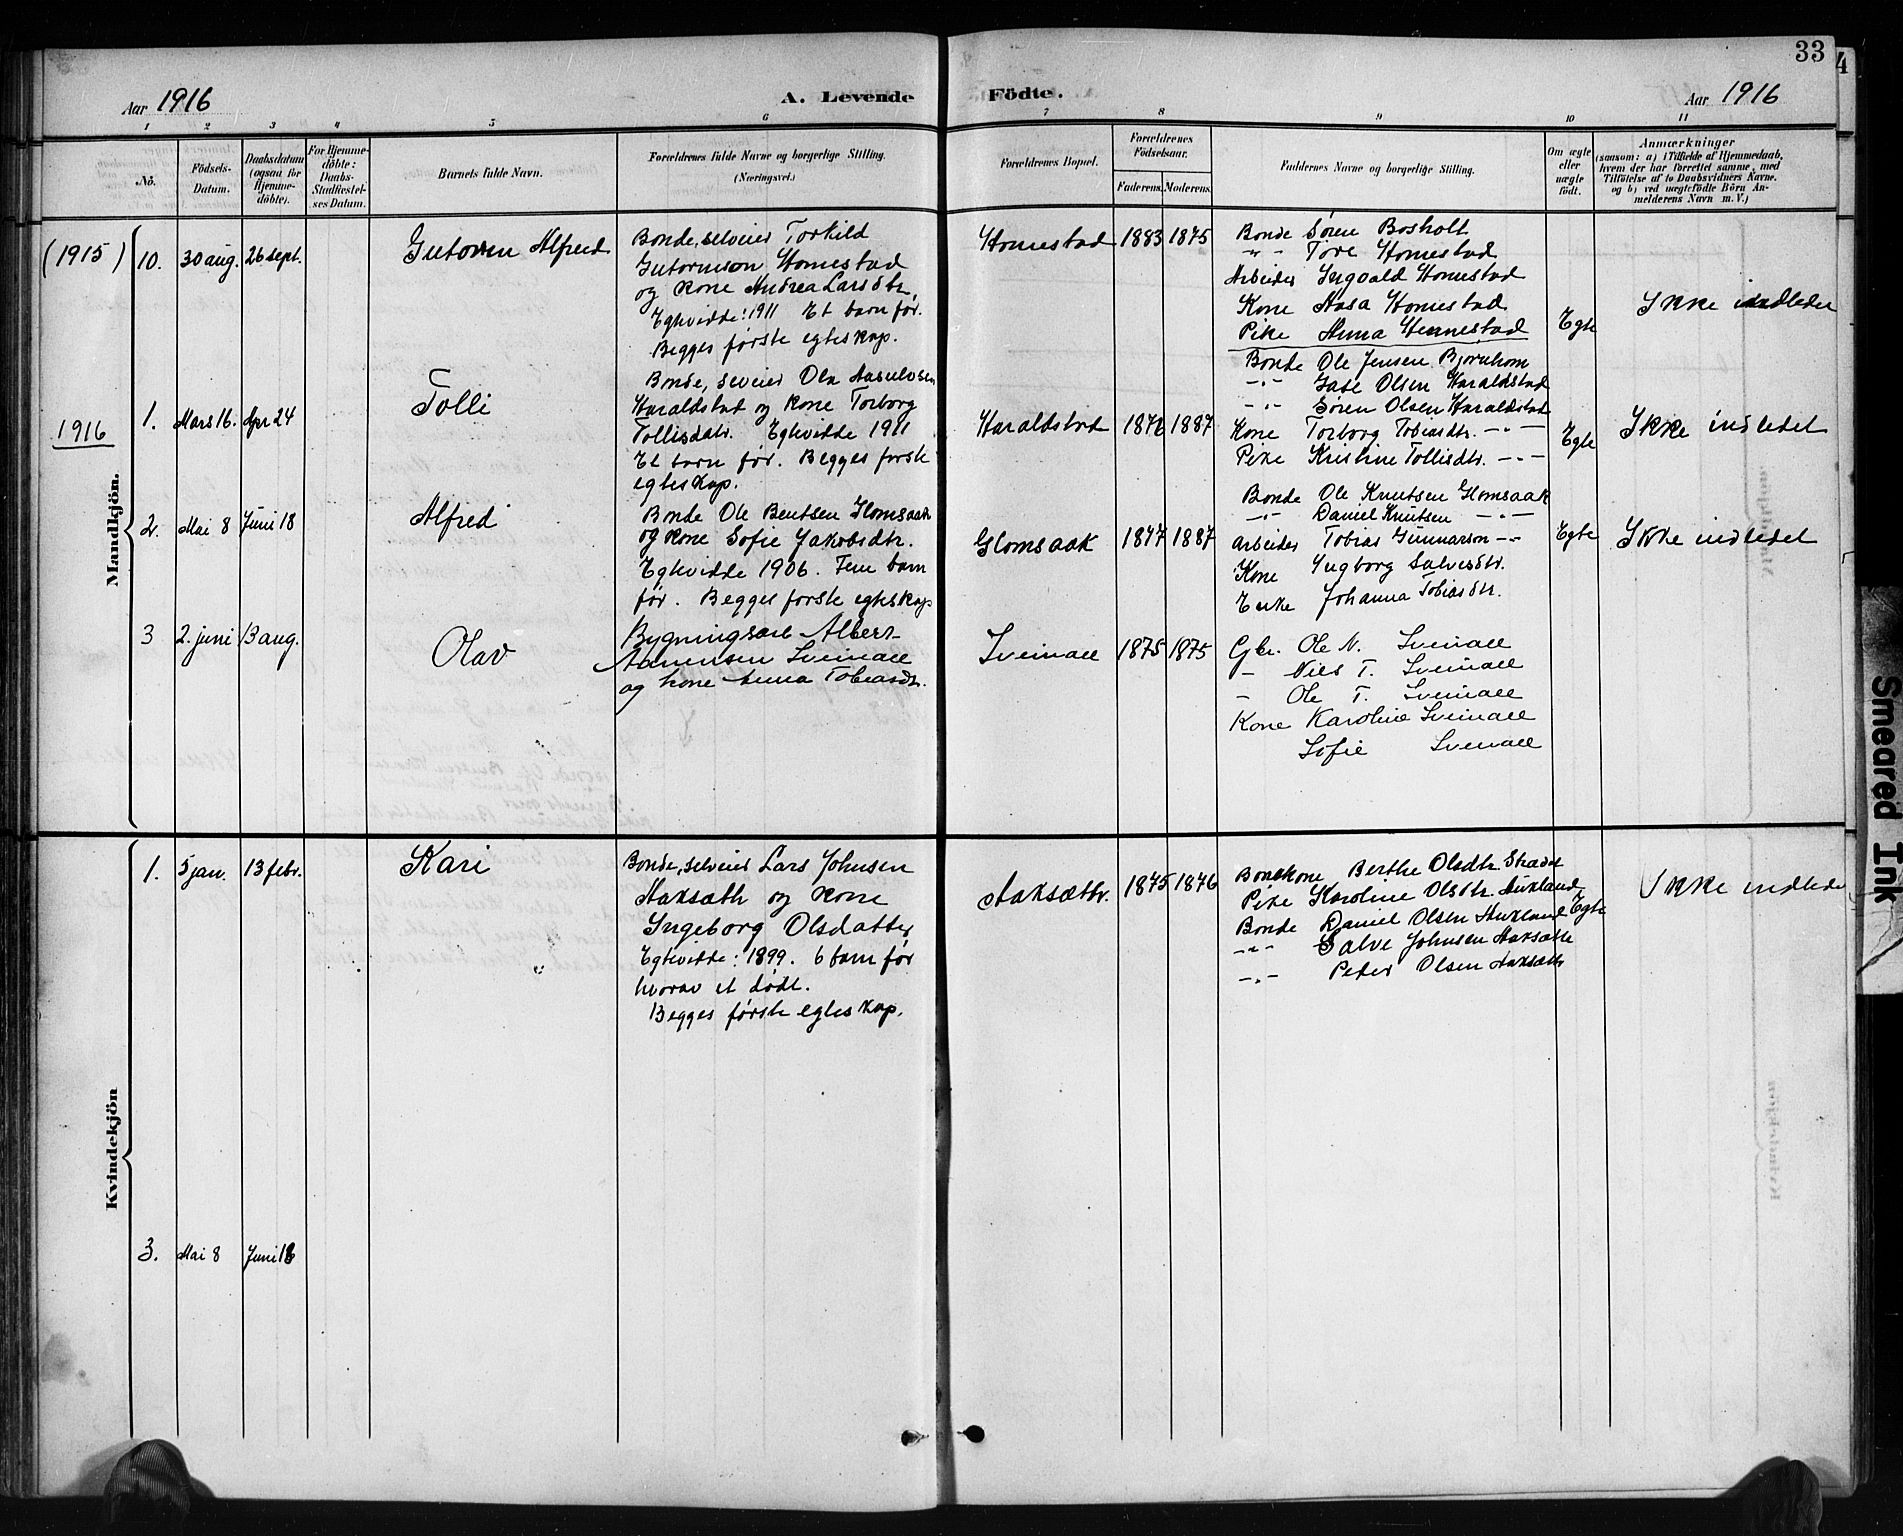 33
4
Aar 1916
A. Levende
Födte.
Aar 1916
1 2 3 4 5 6 7 8 9 10 11
No.
Födsels-
Datum.
Daabsdatum
(ogsaa for
Hjemme-
döbte).
For Hjemme-
döbte:
Daabs-
Stadfæstel-
ses Datum.
Barnets fulde Navn.
Forældrenes fulde Navne og borgerlige Stilling.
(Næringsvei.)
Forældrenes Bopæl.
Forældrenes
Födselsaar.
Faderens. Moderens.
Faddernes Navne og borgerlige Stilling.
Om ægte
eller
uægte
født.
Anmærkninger
(saasom: a) i Tilfælde af Hjemmedaab,
hvem der har forrettet samme, med
Tilföielse af to Daabsvidners Navne,
og b) ved uægtefödte Börn An-
melderens Navn m. V.)
(1915)
10. 30 aug. 26 sept.
Gutorm Alfred
Bonde, selveier Torkild
Gutormson Homestad
og kone Andrea Larsdtr.
Egtevidde: 1911 Et barn før.
Begges første egteskap.
Homestad 1883 1875
Bonde Søren Bosholt
-"- Tore Homestad
Arbeider Ingvald Homestad
Kone Aasa Homestad
Pike Anna Hennestad
Egte
Ikke indledet
1916
Mandkjön.
1. Mars 16. Apr 24
Tolli
Bonde, selveier Ola Aasulvsen
Haraldstad og kone Torborg
Tollisdatr. Egtevidde 1911
Et barn før. Begges første
egteskap.
Haraldstad 1872 1887
Bonde Ole Jensen Bjornhom
-"- Olsen Haraldstad
-"- Søren Olsen Haraldstad
Kone Torborg Tobiasdtr. -"-
Pike Kristine Tollisdtr. -"-
Egte
Ikke indledet
2. Mai 8 Juni 18
Alfred
Bonde Ole Bentsen Glomsaak
og kone Sofie Jakobsdtr.
Egtevidde 1906. Fem barn
før. Begges første egteskap
Glomsaak 1877 1887
Bonde Ole Knutsen Glomsaak
-"- Daniel Knutsen -"-
Arbeider Tobias Gunnarson -"-
Kone Ingborg Salvesdtr.
Enke Johanna Tobiasdtr.
Egte
Ikke indledet
3 2. juni 13 aug.
Olav
Bygningsarb Albert
Aanensen Sveinall
og kone Anna Tobiasdtr.
Sveinall 1875 1875
Gbr. Ole N. Sveinall
- Niels T. Sveinall
- Ole T. Sveinall
Kone Karoline Sveinall
Sofie Sveinall
Kvindekjön
1. 5 jan. 13 febr.
Kari
Bonde, selveier Lars Johnsen
Aaksæth og kone
Ingeborg Olsdatter
Egtevidde: 1899. 6 barn før
hvorav et dødt.
Begges første egteskap.
Aaksættr. 1875 1876
Bondkone Berthe Olsdtr
Pike Karoline Olsdtr Aukland
Bonde Daniel Olsen Aukland
-"- Salve Johnsen Aaksæth
-"- Peder Olsen Aaksæth
Egte
Ikke indlede
3. Mai 8 Juni 18
Smeared Ink